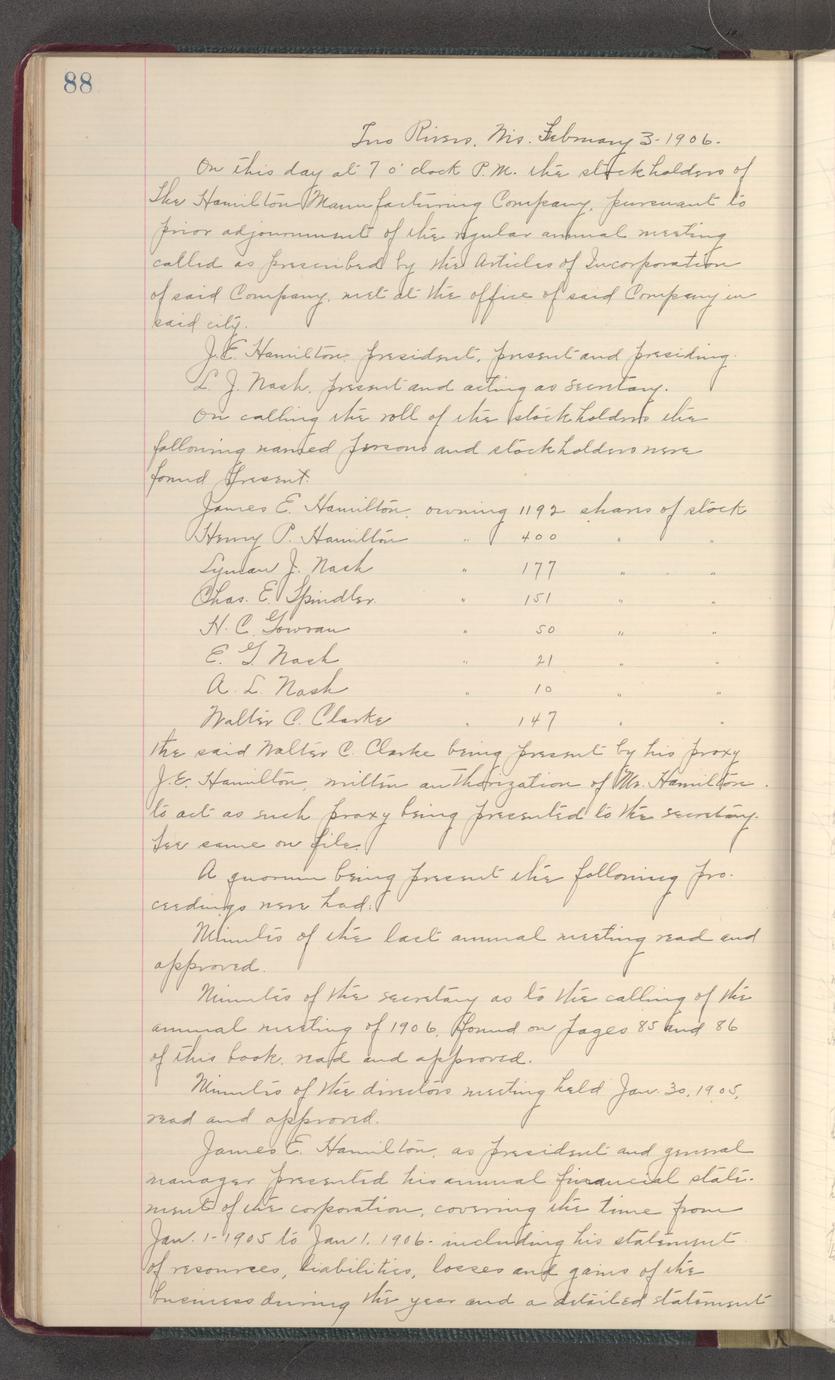 88
Two Rivers, Wis. February 3-1906.
On this day at 7 o'clock P.M. the stockholders of
The Hamilton Manufacturing Company, pursuant to
prior adjournment of the regular annual meeting
called as prescribed by the Articles of Incorporation
of said Company, met at the office of said Company in
said city.
J.E. Hamilton, president, present and presiding.
L. J. Nash, present and acting as secretary.
On calling the roll of the stockholders the
following named persons and stockholders were
found present:
James E. Hamilton, owning 1192 shares of stock
Henry P. Hamilton " 400 " "
Lyman J. Nash " 177 " "
Chas. E. Spindler " 151 " "
H. C. Gowran " 50 " "
E. G. Nash " 21 " "
A. L. Nash " 10 " "
Walter C. Clarke " 147 " "
the said Walter C. Clarke being present by his proxy
J.E. Hamilton, written authorization of Mr. Hamilton
to act as such proxy being presented to the secretary.
See same on file.
A quorum being present the following pro-
ceedings were had:
Minutes of the last annual meeting read and
approved.
Minutes of the secretary as to the calling of the
annual meeting of 1906, found on pages 85 and 86
of this book, read and approved.
Minutes of the directors meeting held Jan. 30, 1905,
read and approved.
James E. Hamilton, as president and general
manager presented his annual financial state-
ment of the corporation, covering the time from
Jan. 1-1905 to Jan 1. 1906- including his statement
of resources, liabilities, losses and gains of the
business during the year and a detailed statement